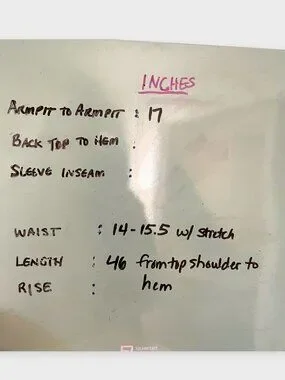 INCHES
ARMPIT TO ARMPIT : 17
BACK TOP TO HEM :
SLEEVE INSEAM :
WAIST : 14-15.5 w/ stretch
LENGTH : 46 from top shoulder to
hem
RISE :
quartet